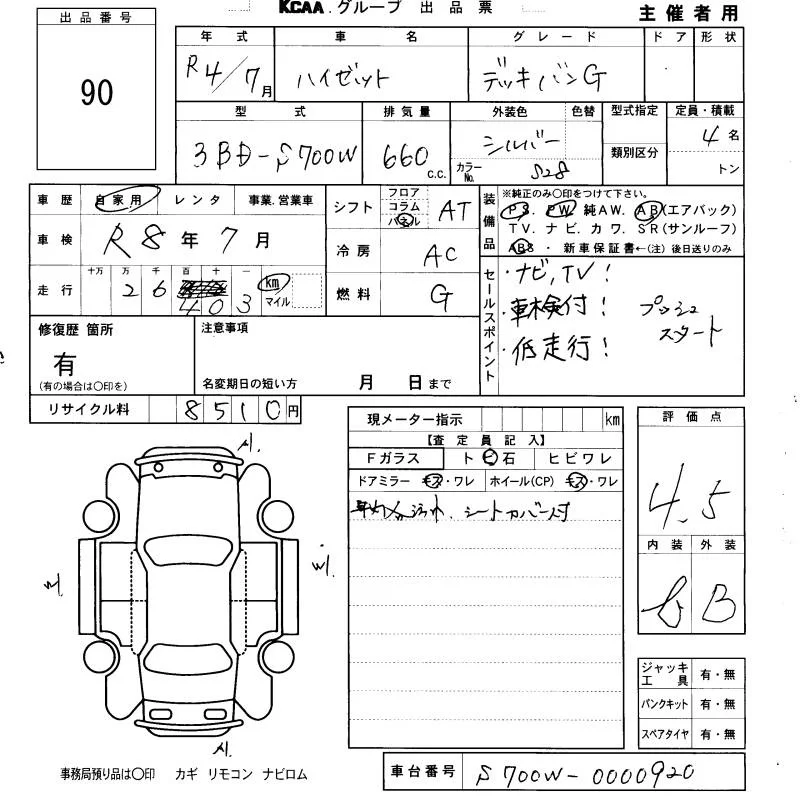 KCAA.グループ 出品票
主催者用
出品番号
90
年式 車名 グレード ドア 形状
R4/7月 ハイゼット デッキバンG
型式 排気量 外装色 色替 型式指定 定員・積載
3BD-S700W 660 C.C. シルバー 4名
カラーNo. S28 類別区分 トン
車歴 自家用 レンタ 事業.営業車
車検 R8年7月
走行 十万 万 千 百 十 一
2 6 4 0 3 km マイル
シフト フロア コラム パネル AT
冷房 AC
燃料 G
装備品
※純正のみ○印をつけて下さい。
PS. PW. 純AW. AB(エアバッグ)
TV. ナビ. カワ. SR(サンルーフ)
ABS・新車保証書←(注)後日送りのみ
セールスポイント
・ナビ,TV!
・車検付! プッシュ
・低走行! スタート
修復歴 箇所
有
(有の場合は○印を)
注意事項
名変期日の短い方 月 日まで
リサイクル料 8510円
現メーター指示 km
【査定員記入】
Fガラス トビ石 ヒビワレ
ドアミラー キズ・ワレ ホイール(CP) キズ・ワレ
シートカバー付
評価点
4.5
内装 外装
B
ジャッキ工具 有・無
パンクキット 有・無
スペアタイヤ 有・無
事務局預り品は○印 カギ リモコン ナビロム
車台番号 S700W-0000920